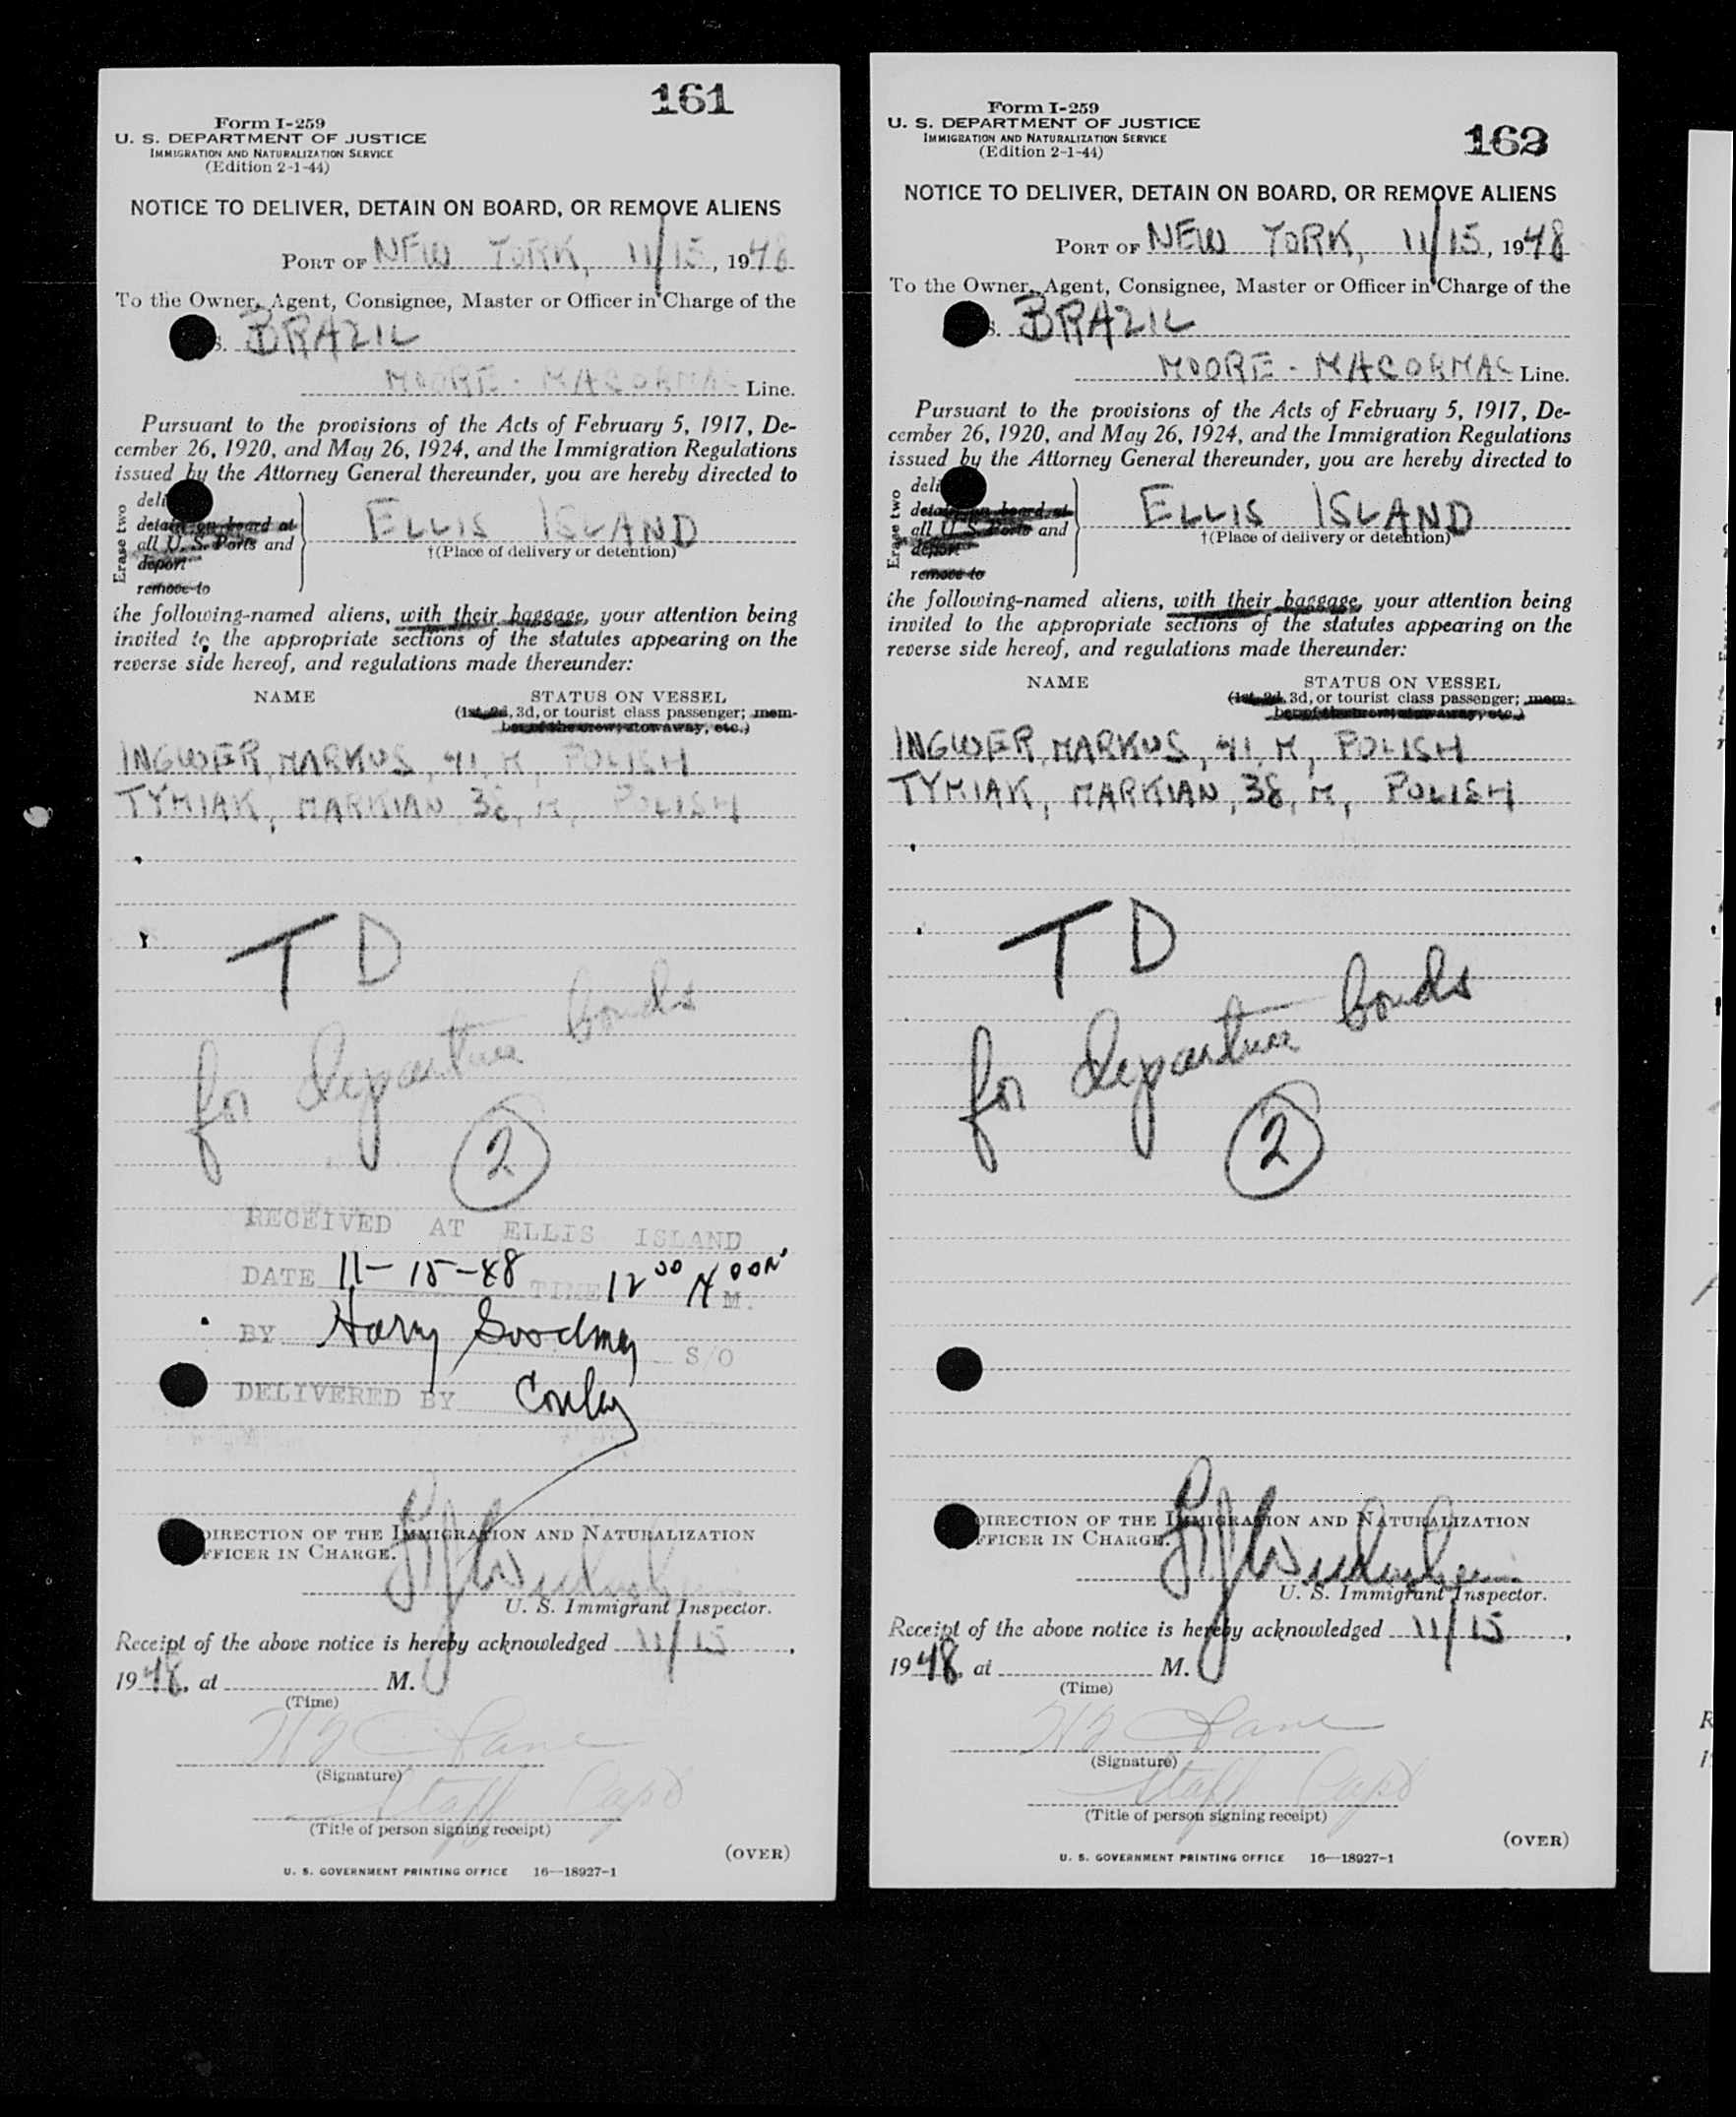 161
Form I-259
U. S. DEPARTMENT OF JUSTICE
IMMIGRATION AND NATURALIZATION SERVICE
(Edition 2-1-44)
NOTICE TO DELIVER, DETAIN ON BOARD, OR REMOVE ALIENS
PORT OF NEW YORK, 11/15, 1948
To the Owner, Agent, Consignee, Master or Officer in Charge of the
S. BRAZIL
MOORE-MACORMAC Line.
Pursuant to the provisions of the Acts of February 5, 1917, De-
cember 26, 1920, and May 26, 1924, and the Immigration Regulations
issued by the Attorney General thereunder, you are hereby directed to
Erase two
deli
detain on board at
all U. S. Ports and
deport
remove to
ELLIS ISLAND
†(Place of delivery or detention)
the following-named aliens, with their baggage, your attention being
invited to the appropriate sections of the statutes appearing on the
reverse side hereof, and regulations made thereunder:
NAME STATUS ON VESSEL
(1st, 2d, 3d, or tourist class passenger; mem-
ber of the crew, stowaway, etc.)
INGWER, MARKUS, 41, M, POLISH
TYMIAK, MARKIAN 38, M, POLISH
T D
for departure bonds
2
RECEIVED AT ELLIS ISLAND
DATE 11-15-48 TIME 12 00 NOON M.
BY Harry Goodman S/O
DELIVERED BY Conley
DIRECTION OF THE IMMIGRATION AND NATURALIZATION
FFICER IN CHARGE.
U. S. Immigrant Inspector.
Receipt of the above notice is hereby acknowledged 11/15,
1948, at M.
(Time)
Lane
(Signature)
Staff Capt
(Title of person signing receipt)
(OVER)
U. S. GOVERNMENT PRINTING OFFICE 16—18927-1
Form I-259
U. S. DEPARTMENT OF JUSTICE
IMMIGRATION AND NATURALIZATION SERVICE
(Edition 2-1-44)
NOTICE TO DELIVER, DETAIN ON BOARD, OR REMOVE ALIENS
PORT OF NEW YORK, 11/15, 1948
To the Owner, Agent, Consignee, Master or Officer in Charge of the
S. BRAZIL
MOORE-MACORMAC Line.
Pursuant to the provisions of the Acts of February 5, 1917, De-
cember 26, 1920, and May 26, 1924, and the Immigration Regulations
issued by the Attorney General thereunder, you are hereby directed to
Erase two
deli
detain on board at
all U. S. Ports and
deport
remove to
ELLIS ISLAND
†(Place of delivery or detention)
the following-named aliens, with their baggage, your attention being
invited to the appropriate sections of the statutes appearing on the
reverse side hereof, and regulations made thereunder:
NAME STATUS ON VESSEL
(1st, 2d, 3d, or tourist class passenger; mem-
ber of the crew, stowaway, etc.)
INGWER, MARKUS, 41, M, POLISH
TYMIAK, MARKIAN, 38, M, POLISH
T D
for departure bonds
2
DIRECTION OF THE IMMIGRATION AND NATURALIZATION
FFICER IN CHARGE.
U. S. Immigrant Inspector.
Receipt of the above notice is hereby acknowledged 11/15,
1948, at M.
(Time)
Lane
(Signature)
Staff Capt
(Title of person signing receipt)
(OVER)
U. S. GOVERNMENT PRINTING OFFICE 16—18927-1